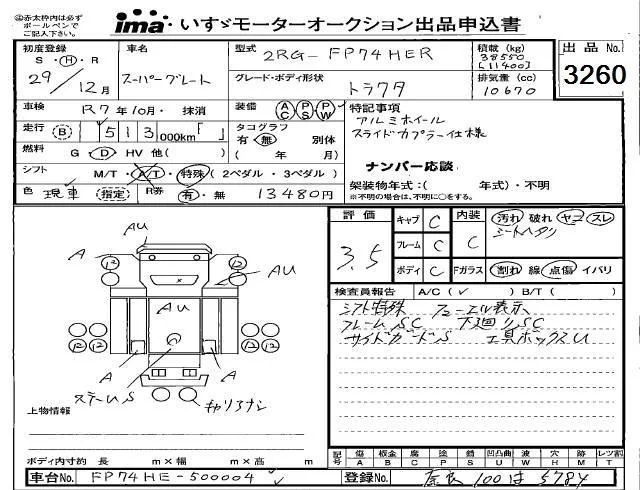 ①赤太枠内は必ず
ボールペンで
ご記入下さい。
ima いすゞモーターオークション出品申込書
初度登録
S・H・R
29/12月
車名
スーパーグレート
型式
2RG-FP74HER
グレード・ボディ形状
トラクタ
積載(kg)
38550
[11400]
排気量(cc)
10670
出品No.
3260
車検 R7年10月・抹消
装備 AC PS PW
走行 B 513 000km「 」
タコグラフ 有・無 別体
( 年 月)
燃料 G・D・HV 他( )
シフト M/T・A/T・特殊(2ペダル・3ペダル)
色 現車 (指定) R券 有・無 13480円
特記事項
アルミホイール
スライドカプラー仕様
ナンバー応談
架装物年式:( 年式)・不明
※不明の場合は、不明に○をする。
評価
3.5
キャブ C
フレーム C
ボディ C
内装 C
汚れ 破れ ヤニ スレ
シートヘタリ
Fガラス 割れ 線 点傷 イバリ
検査員報告 A/C(✓) B/T( )
シフト特殊 フューエル表示
フレームSC 下廻りSC
サイドガードS 工具ボックスU
AU
A
AU
12
12
AU
12
12
12
12
A
A
ステームS
キャリアナシ
上物情報
ボディ内寸約 長 m×幅 m×高 m
記号 傷A 板金B 腐C 塗P 錆S 凹凸曲U 波W 穴H 跡M レツ割T
車台No. FP74HE-500004
登録No. 奈良 100は5784